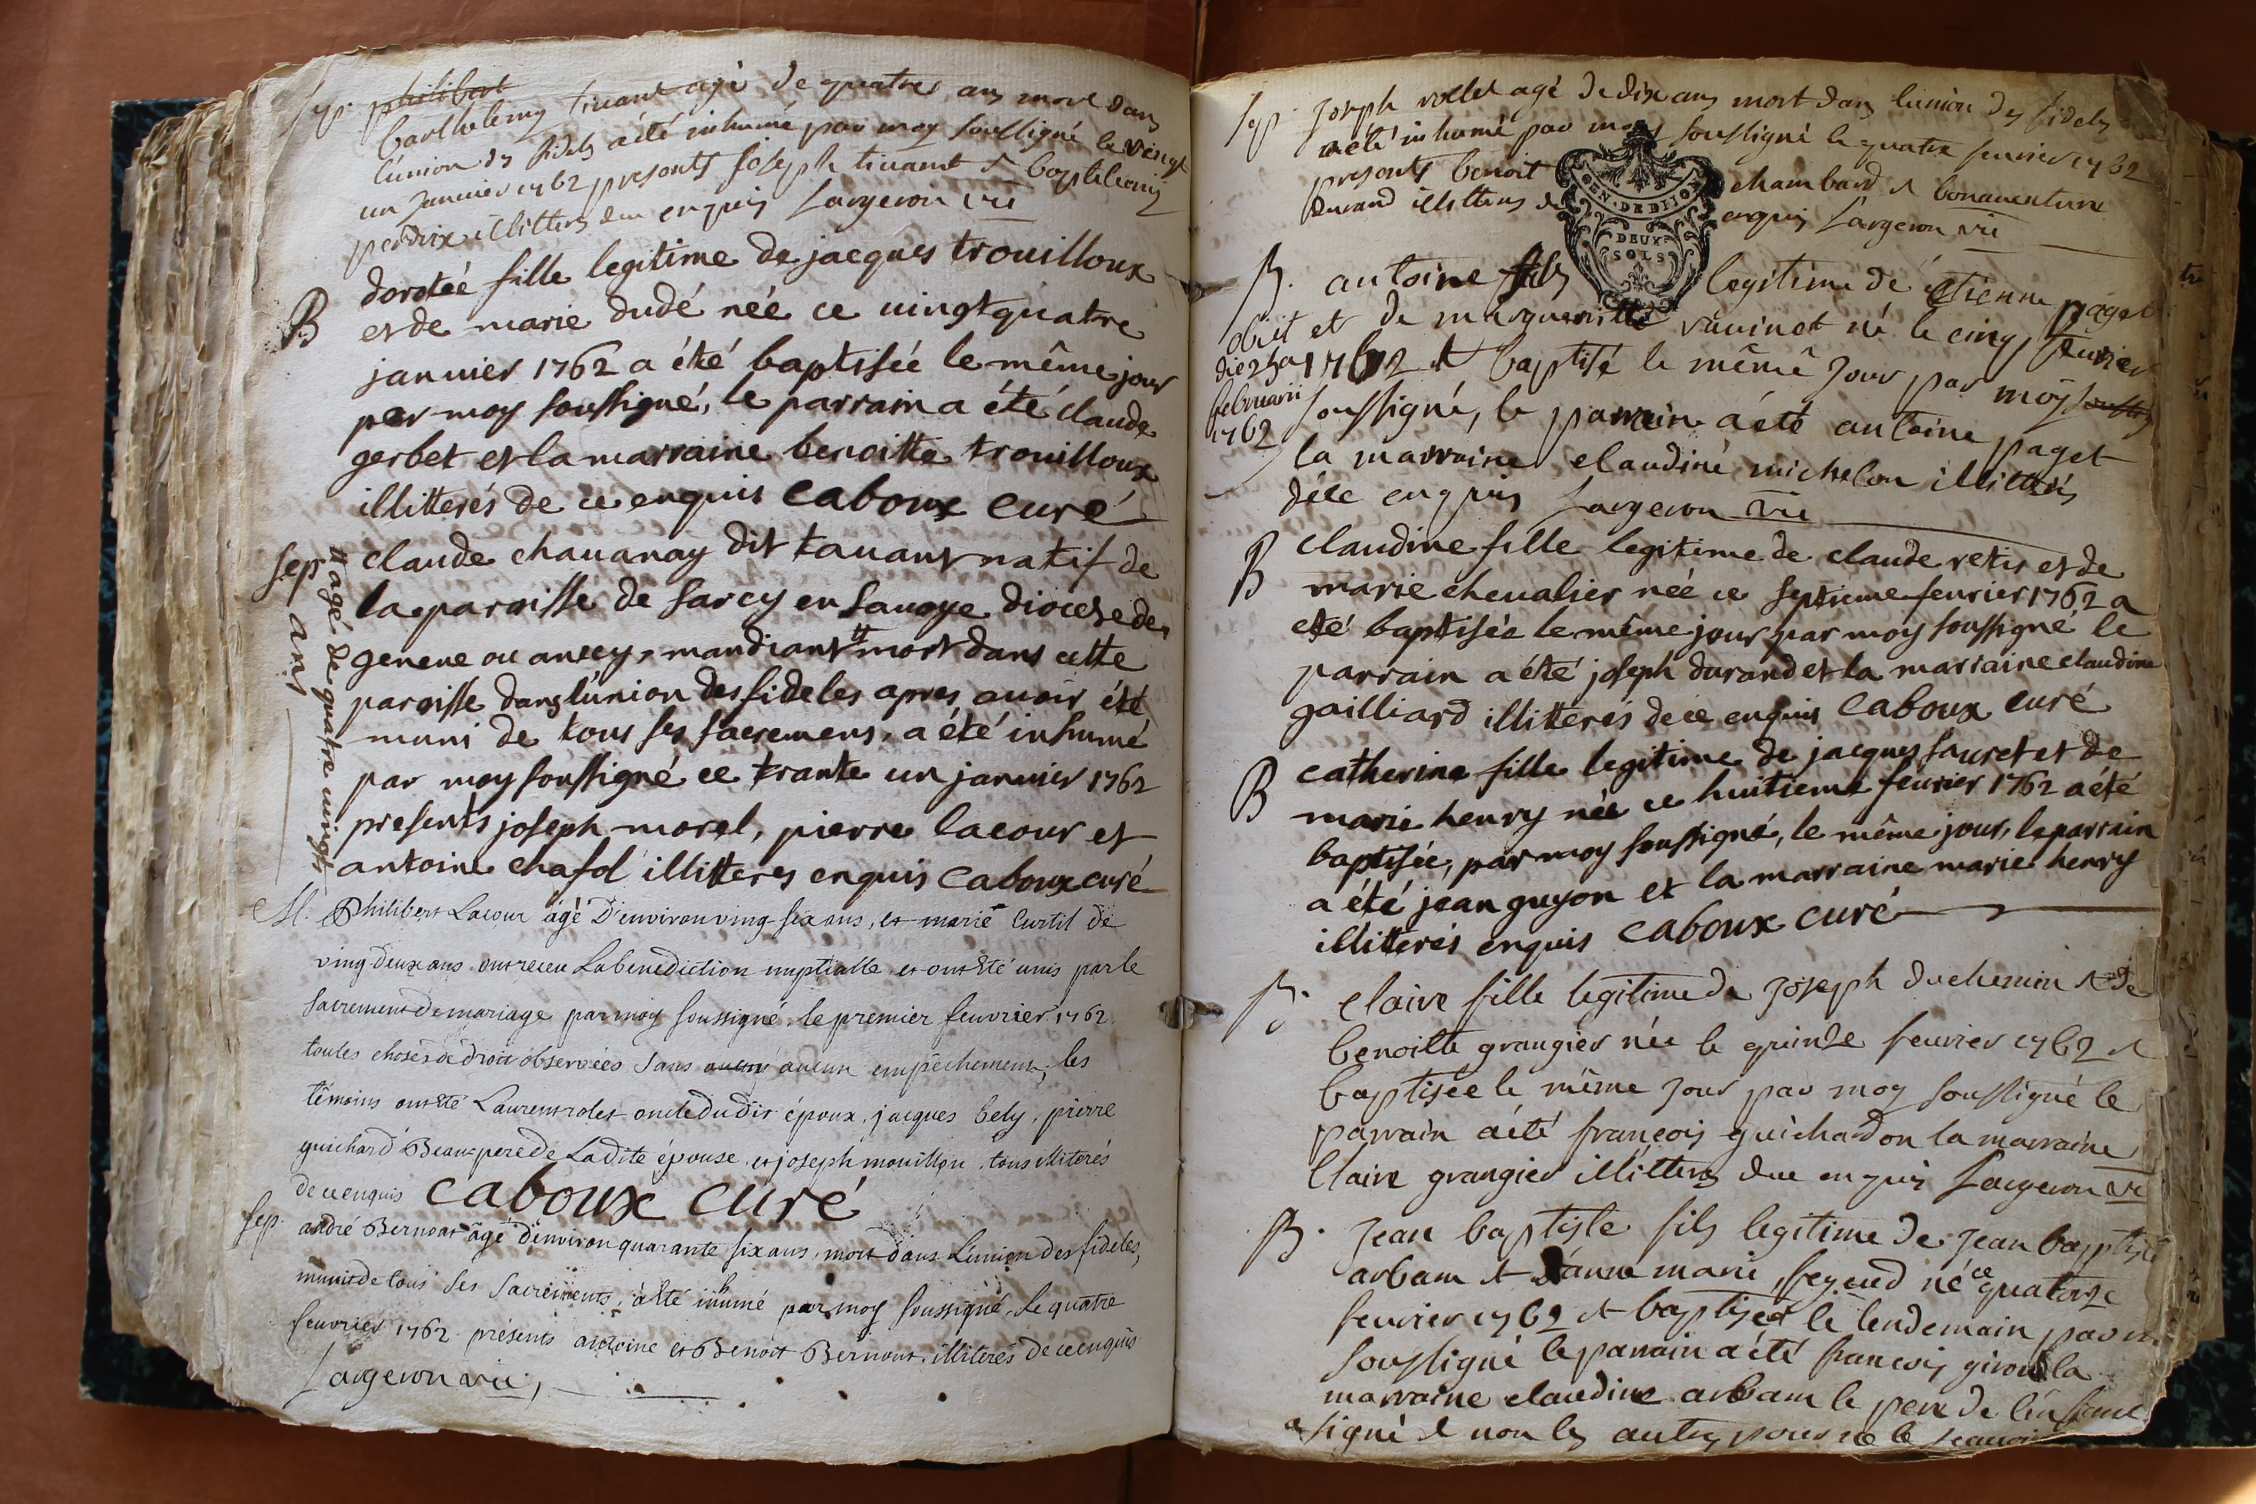 sep. philibert
barthelemy tivant agé de quatres ans mort dans
l'union ds fidels a été inhumé par moy soussigné le vingt
un Janvier 1762 presents joseph tivant &
perdrix illitters due enquis Largeron vic
B dorotéé fille legitime de jacques trouilloux
et de marie dudé néé ce uingt quatre
januier 1762 a été baptisée le même jour
par moy soussigné, le parrain a été claude
gerbet et la marraine benoitte trouilloux
illitterés de ce enquis caboux curé
sep claude chauanay dit tauant natif de
la paroisse de sarcy en sauoye diocese de
geneue ou ancy, mandiant # mort dans cette
paroisse dans l'union des fideles apres auoir été
muni de tous ses sacremens, a été inhumé
par moy soussigné ce trante un januier 1762
presents joseph morel, pierre lacour et
antoine chafol illitteres enquis caboux curé
# agé de quatre uingt
ans
M. Philibert Lacour âgé D'environ ving six ans, et marie Curtil de
ving deux ans ont receu La benediction nuptialle et ont été unis par le
Sacrement de mariage par moy soussigné, le premier feuvrier 1762
toutes choses de droit observées sans aucun aucun empêchement, les
témoins ont été Laurent rolet oncle du dit époux, jacques bely, pierre
guichard Beau pere de Ladite épouse, et joseph mouillon, tous illiterés
de ce enquis caboux curé
sep. andré Bernont âgé d'environ quarante six ans, mort dans L'union des fideles,
munit de tous ses Sacrements, a été inhumé par moy soussigné, Le quatre
feuvrier 1762 présents antoine et Benoit Bernont, illiterés de ce enquis
Largeron vic,
sep. Joseph rollet agé de dix ans mort dans lunion ds fidels
a été inhumé par moy soussigné le quatre feurier 1762
presents benoit chambard & bonauenture
durand illitters de enquis Largeron vic
GEN. DE DIJON
DEUX
SOLS
B. antoine fils legitime de étienne paget
et de marguerite rauinet né le cinq feurier
1762 & baptisé le même Jour par moy
soussigné, le parrein a été antoine paget
la marraine claudine michelon illitterés
dece enquis Largeron vic
obiit
die 25a
februarii
1762
B claudine fille legitime de claude retis et de
marie cheualier néé ce septieme feurier 1762 a
eté baptisée le même jour par moy soussigné le
parrain a été joseph durand et la marraine claudine
gailliard illitterés de ce enquis caboux curé
B catherine fille legitime de jacques sauret et de
marie henry néé ce huitieme feurier 1762 a été
baptisée, par moy soussigné, le même jour, le parrain
a été jean guyon et la marraine marie henry
illitterés enquis caboux curé
B. claire fille legitime de Joseph duchemin & de
benoitte grangier née le quinze feurier 1762 &
baptisée le même Jour par moy soussigné le
parrain a été françois guichardon la marraine
Claire grangier illitters due enquis Largeron vic
B. Jean baptiste fils legitime de Jean baptiste
arbam & d'anne marie feyeud né ce quatorze
feurier 1762 & baptisé le lendemain par m
soussigné le parrain a été francois giroud la
marraine claudine arbam le pere de l'enfant
a signé & non ls autres pour ne le scauoir